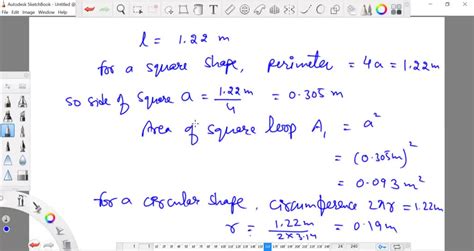 Autodesk SketchBook - Untitled @
File Edit Image Window Help
l = 1.22 m
for a square shape, perimeter = 4a = 1.22m
so side of square a = 1.22m / 4 = 0.305 m
Area of square loop A₁ = a²
= (0.305m)²
= 0.093 m²
for a circular shape, circumference 2πr = 1.22m
r = 1.22m / 2×3.14 = 0.19m